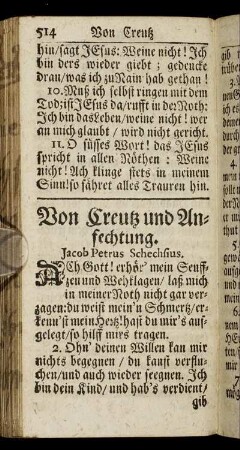 514 Von Creutz
hin/sagt JEsus: Weine nicht! Ich
bin ders wieder giebt; gedencke
dran/was ich zu Nain hab gethan!
10. Muß ich selbst ringen mit dem
Tod; ist JEsus da/rufft in der Noth:
Ich bin das Leben/weine nicht! wer
an mich glaubt/wird nicht gericht.
11. O süsses Wort! das JEsus
spricht in allen Nöthen: Weine
nicht! Ach klinge stets in meinem
Sinn! so fähret alles Trauren hin.
Von Creutz und An-
fechtung.
Jacob Petrus Schechsius.
ACh Gott! erhör' mein Seuff-
zen und Wehklagen/laß mich
in meiner Noth nicht gar ver-
zagen: du weist mein'n Schmertz/er-
kenn'st mein Hertz! hast du mir's auf-
gelegt/so hilf mirs tragen.
2. Ohn' deinen Willen kan mir
nichts begegnen/du kanst verflu-
chen/und auch wieder seegnen. Ich
bin dein Kind/und hab's verdient/
gib